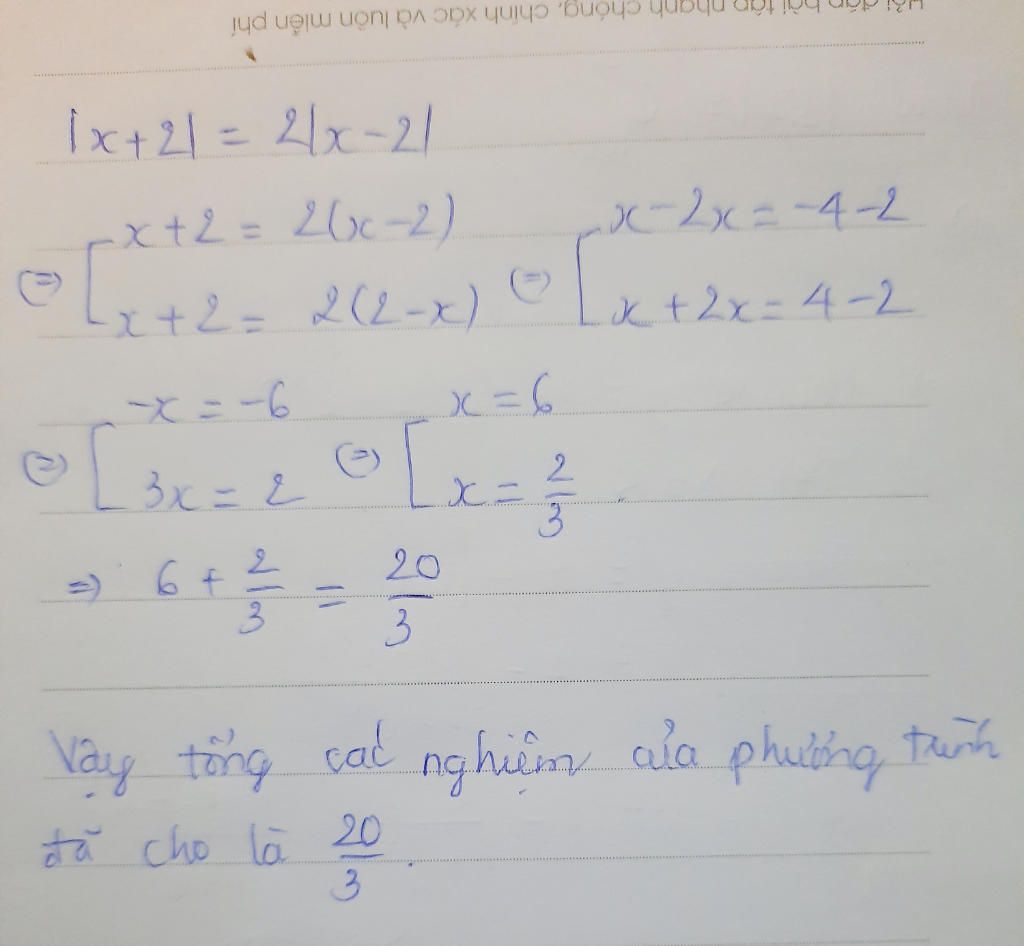 Hỏi đáp bài tập nhanh chóng, chính xác và luôn miễn phí
|x+2| = 2|x-2|
⇔ [ x+2 = 2(x-2) ⇔ [ x-2x = -4-2
x+2 = 2(2-x) x+2x = 4-2
⇔ [ -x = -6 ⇔ [ x = 6
3x = 2 x = 2/3 .
⇒ 6 + 2/3 = 20/3
Vậy tổng các nghiệm của phương trình
đã cho là 20/3 .